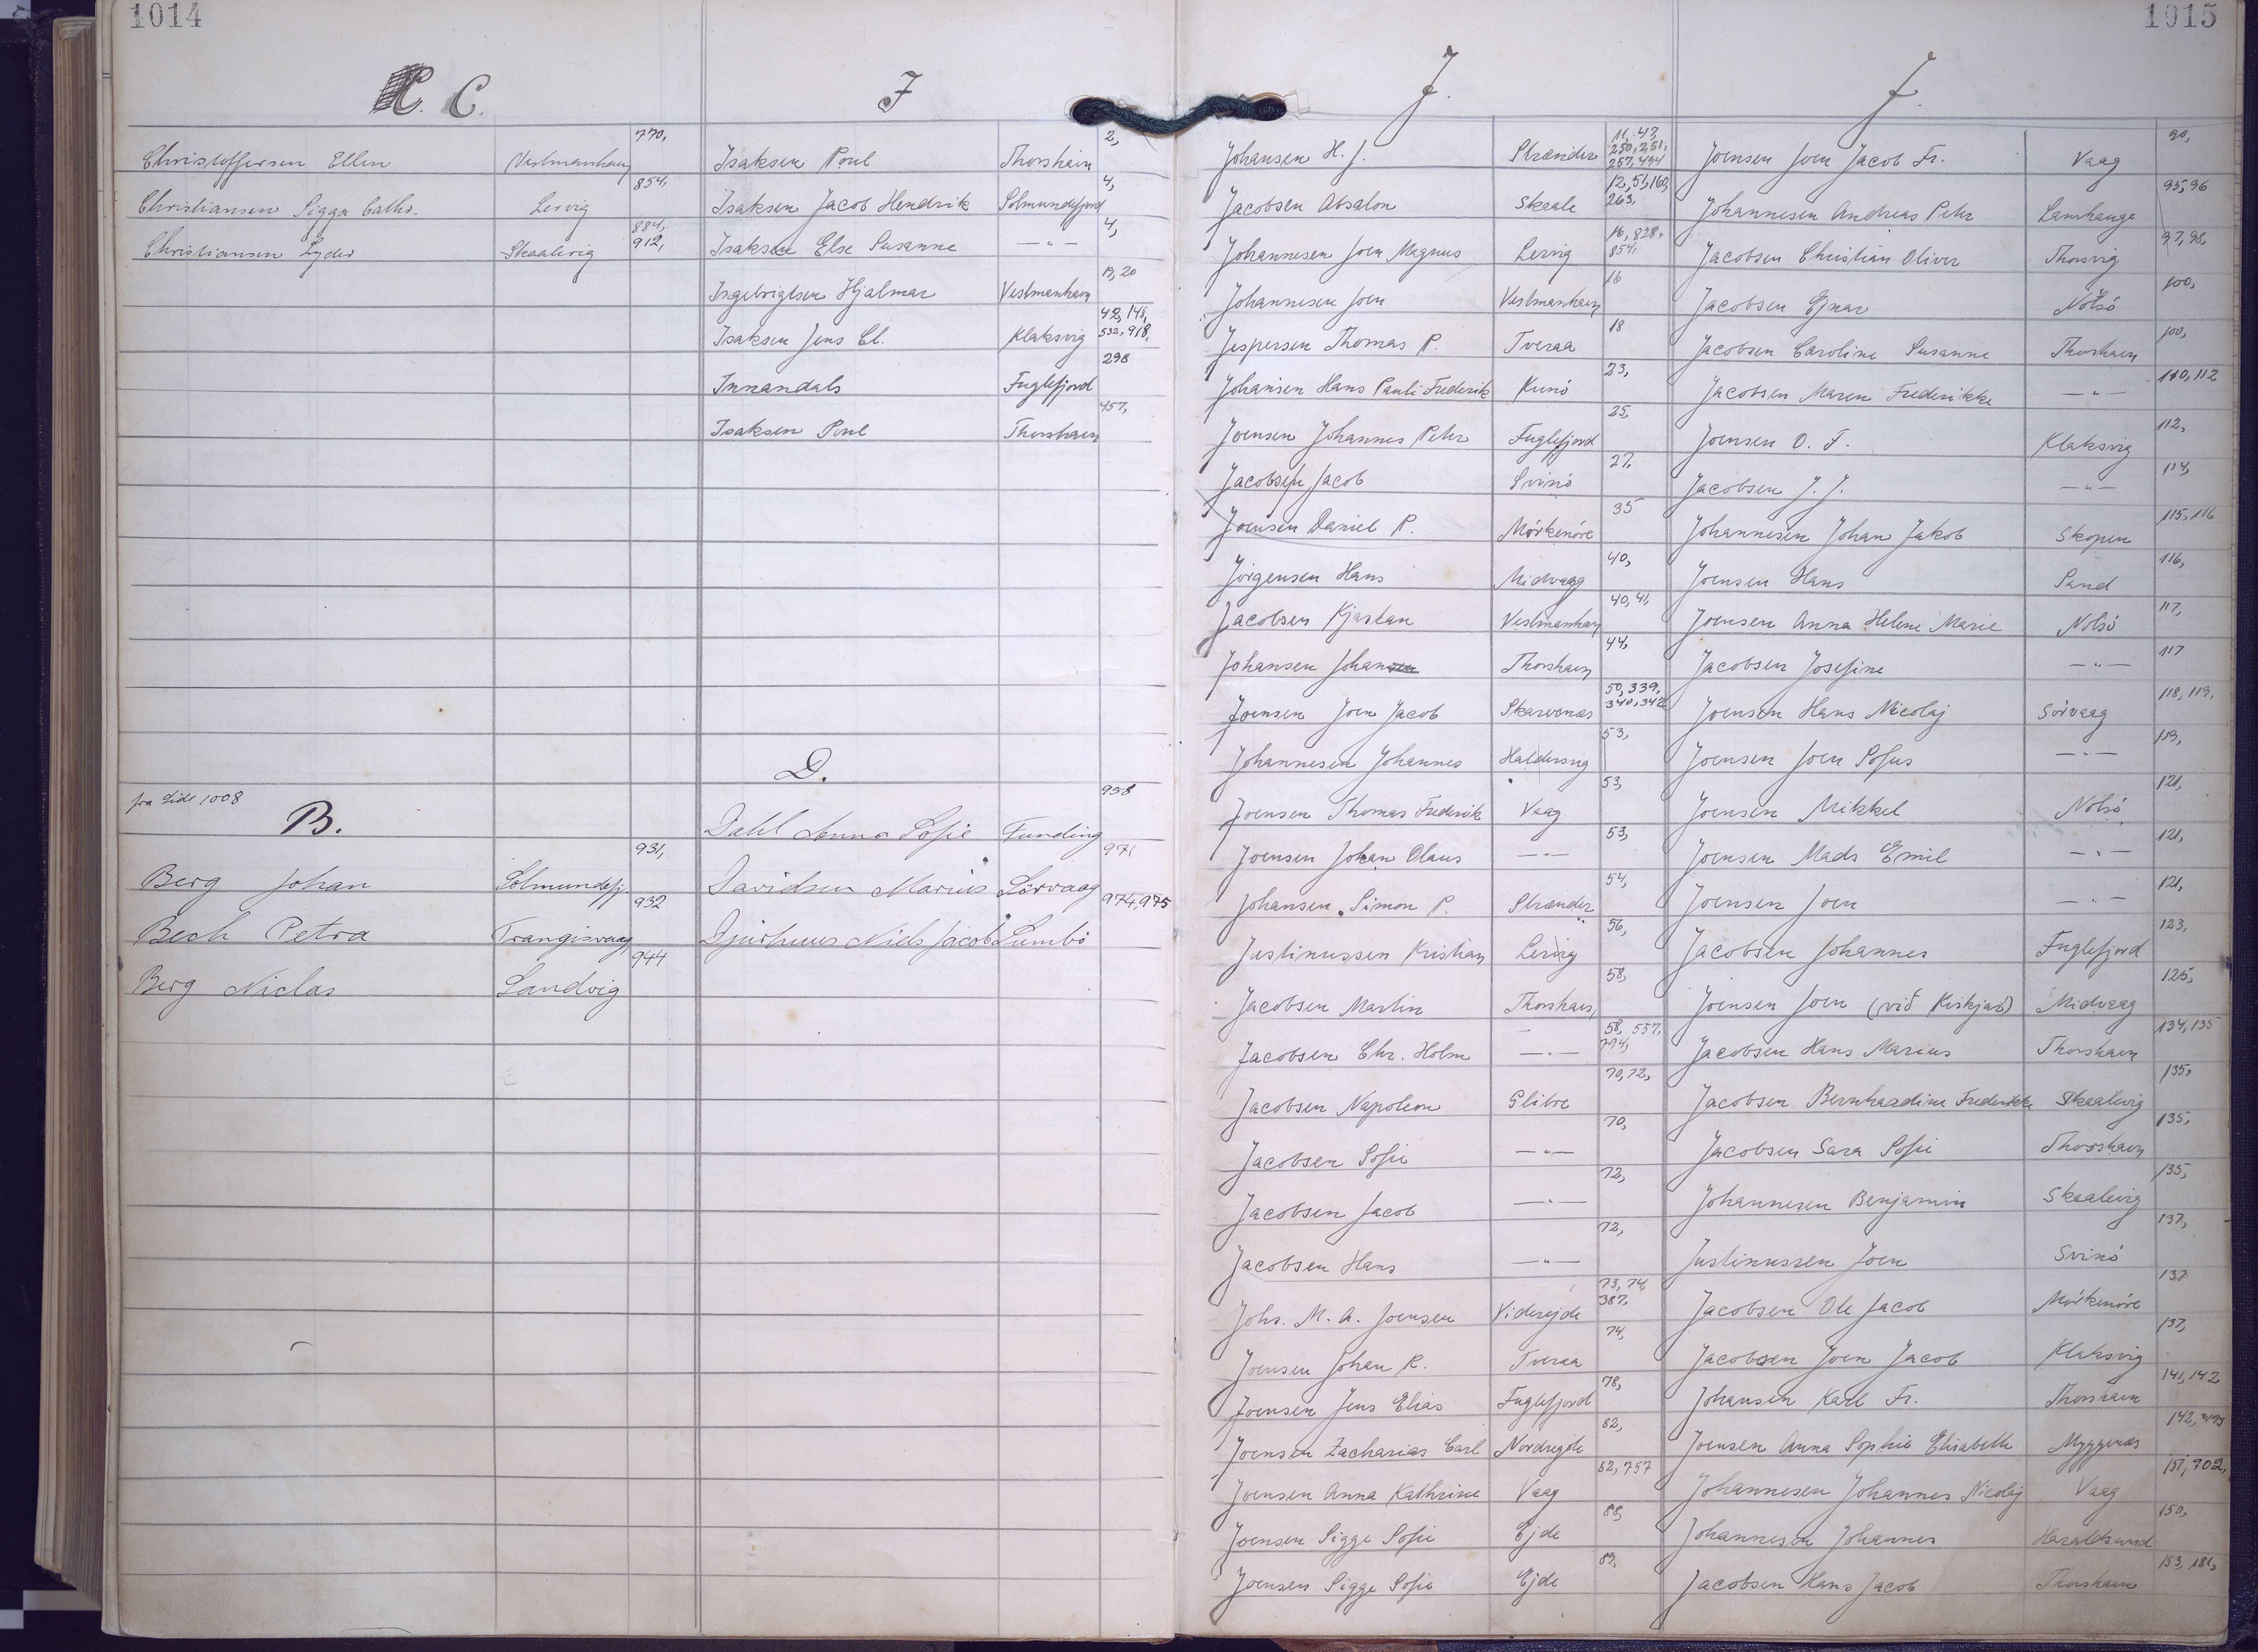 1014
C.
Christoffersen Ellen Vestmanhavn 770,
Christiansen Sigga Cathr. Lervig 854,
Christiansen Lyder Skaalevig 884, 912,
fra Side 1008
B.
Berg Johan Solmundefj. 931,
Bech Petra Trangisvaag 932
Berg Niclas Sandvig 944
I
Isaksen Poul Thorshavn 2,
Isaksen Jacob Hendrik Solmundefjord 4,
Isaksen Else Susanne —"— 4,
Ingebrigtsen Hjalmar Vestmanhavn 13, 20
Isaksen Jens Cl. Klaksvig 42, 148, 532, 918,
Innandals Fuglefjord 298
Isaksen Poul Thorshavn 457,
D.
Dahl Anna Sofie Funding 958
Davidsen Marius Sörvaag 971
Djurhuus Niels Jacob Sumbö 974, 975
1015
J.
Johansen H. J. Strænder 11, 47, 250, 251, 257, 494
Jacobsen Absalon Skaale 12, 51, 160, 263,
Johannesen Joen Magnus Lervig 16, 828, 854,
Johannesen Joen Vestmanhavn 16
Jespersen Thomas P. Tveraa 18
Johansen Hans Pauli Frederik Kunö 23,
Joensen Johannes Petur Fuglefjord 25,
Jacobsen Jacob Svinö 27,
Joensen Daniel P. Mörkenöre 35
Jörgensen Hans Midvaag 40,
Jacobsen Kjartan Vestmanhavn 40, 41,
Johansen Johan Thorshavn 44,
Joensen Joen Jacob Skarvenæs 50, 339, 340, 342
Johannesen Johannes Haldersvig 53,
Joensen Thomas Frederik Vaag 53,
Joensen Johan Olaus —"— 53,
Johansen Simon P. Strænder 54,
Justinussen Kristian Lervig 56,
Jacobsen Martin Thorshavn 58,
Jacobsen Chr. Holm —"— 58, 557, 794,
Jacobsen Napoleon Glibre 70, 72,
Jacobsen Sofie —"— 70,
Jacobsen Jacob —"— 72,
Jacobsen Hans —"— 72,
Johs. M. A. Joensen Viderejde 73, 74, 387,
Joensen Johan R. Tveraa 74,
Joensen Jens Elias Fuglefjord 78,
Joensen Zacharias Carl Nordregöte 82,
Joensen Anna Kathrine Vaag 82, 757
Joensen Sigge Sofie Ejde 88,
Joensen Sigge Sofie Ejde 89,
J.
Joensen Joen Jacob Fr. Vaag 90,
Johannesen Andreas Petur Lamhauge 95, 96
Jacobsen Christian Oliver Thorsvig 97, 98,
Jacobsen Ejnar Nolsö 100,
Jacobsen Caroline Susanne Thorshavn 100,
Jacobsen Maren Frederikke —"— 110, 112
Joensen O. F. Klaksvig 112,
Jacobsen J. J. —"— 114,
Johannesen Johan Jakob Skopen 115, 116
Joensen Hans Sand 116,
Joensen Anna Helene Marie Nolsö 117,
Jacobsen Josefine —"— 117
Joensen Hans Nicolaj Sörvaag 118, 119,
Joensen Joen Sofus —"— 119,
Joensen Mikkel Nolsö 121,
Joensen Mads Emil —"— 121,
Joensen Joen —"— 121,
Jacobsen Johannes Fuglefjord 123,
Joensen Joen (við Kirkjað) Midvaag 125,
Jacobsen Hans Marius Thorshavn 134, 135
Jacobsen Bernhardine Frederikke Skaalevig 135,
Jacobsen Sara Sofie Thorshavn 135,
Johannesen Benjamin Skaalevig 135,
Justinussen Joen Svinö 137,
Jacobsen Ole Jacob Mörkenöre 137
Jacobsen Joen Jacob Klaksvig 137,
Johansen Karl Fr. Thorshavn 141, 142
Joensen Anna Sophie Elisabeth Myggenæs 142,
Johannesen Johannes Nicolaj Vaag 151, 902,
Johannesen Johannes Haraldsund 150,
Jacobsen Hans Jacob Thorshavn 153, 181,